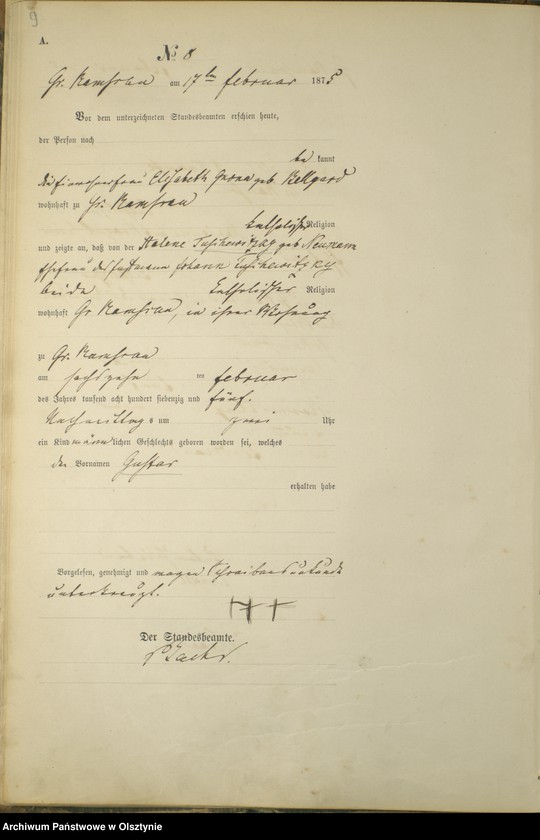 9
A.
No 8
Gr. Ramsau am 17ten Februar 1875
Vor dem unterzeichneten Standesbeamten erschien heute,
der Person nach
be kannt
die Einwohnerfrau Elisabeth geb. Kellgard
wohnhaft zu Gr. Ramsau
katholischer Religion
und zeigte an, daß von der Helene geb. Neumann
Ehefrau des Johann
beide katholischer Religion
wohnhaft Gr Ramsau, in ihrer Wohnung
zu Gr. Ramsau
am sechszehn ten Februar
des Jahres tausend acht hundert siebenzig und fünf.
Nachmittags um zwei Uhr
ein Kind männlichen Geschlechts geboren worden sei, welches
den Vornamen Gustav
erhalten habe
Vorgelesen, genehmigt und wegen Schreibensunkunde
unterkreuzt.
+++
Der Standesbeamte.
Archiwum Państwowe w Olsztynie